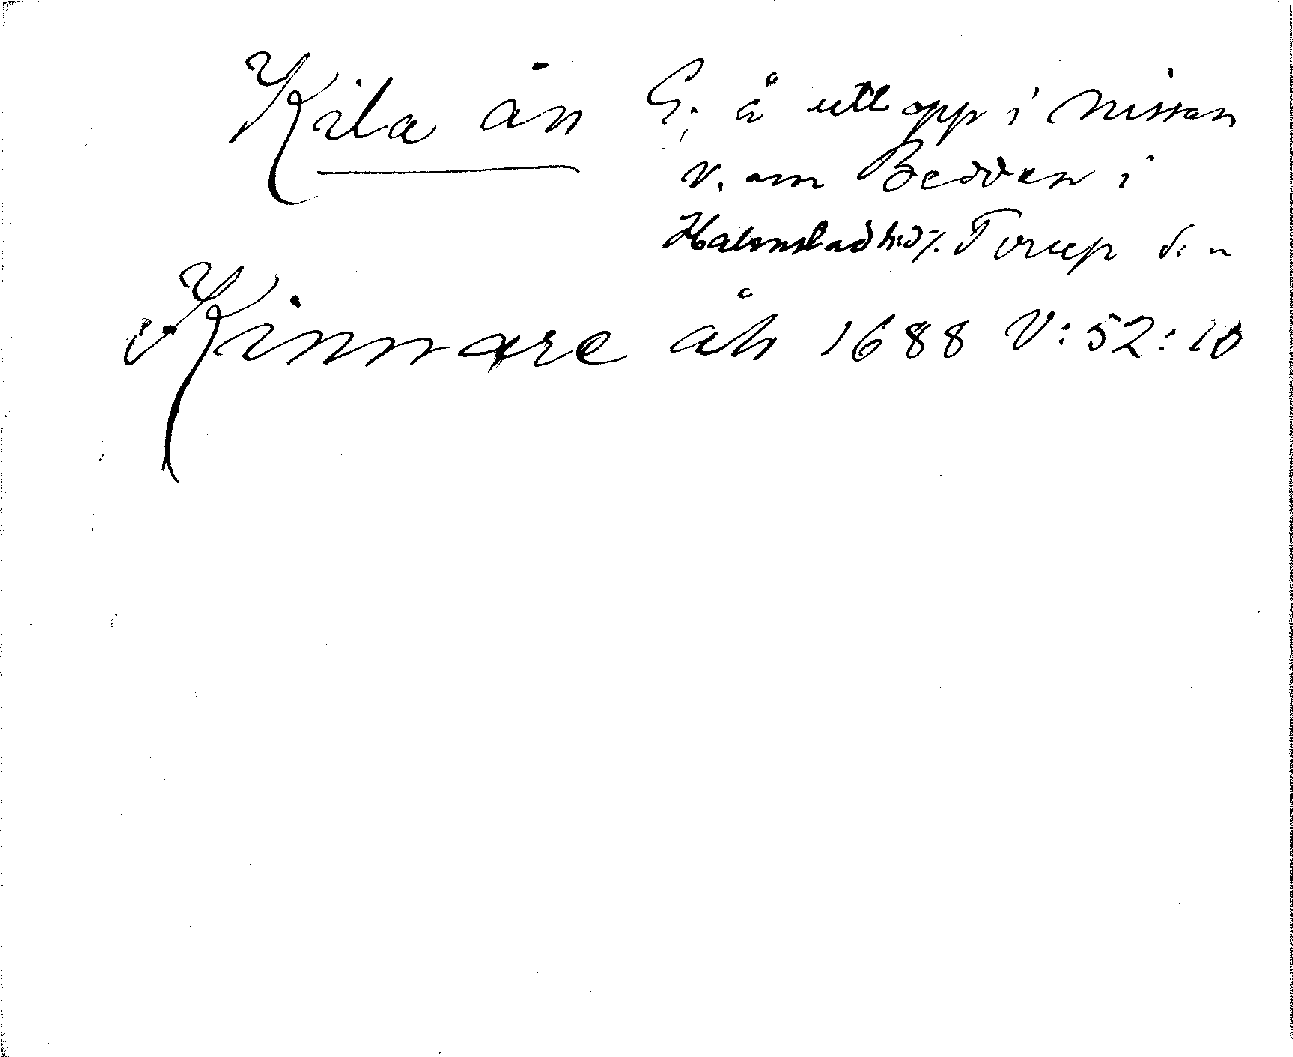 Kila ån G; å utlopp i Nissan
v. om Bedden i
Halmstad hd. Torup s:n
Kinnare åh 1688 V:52:10